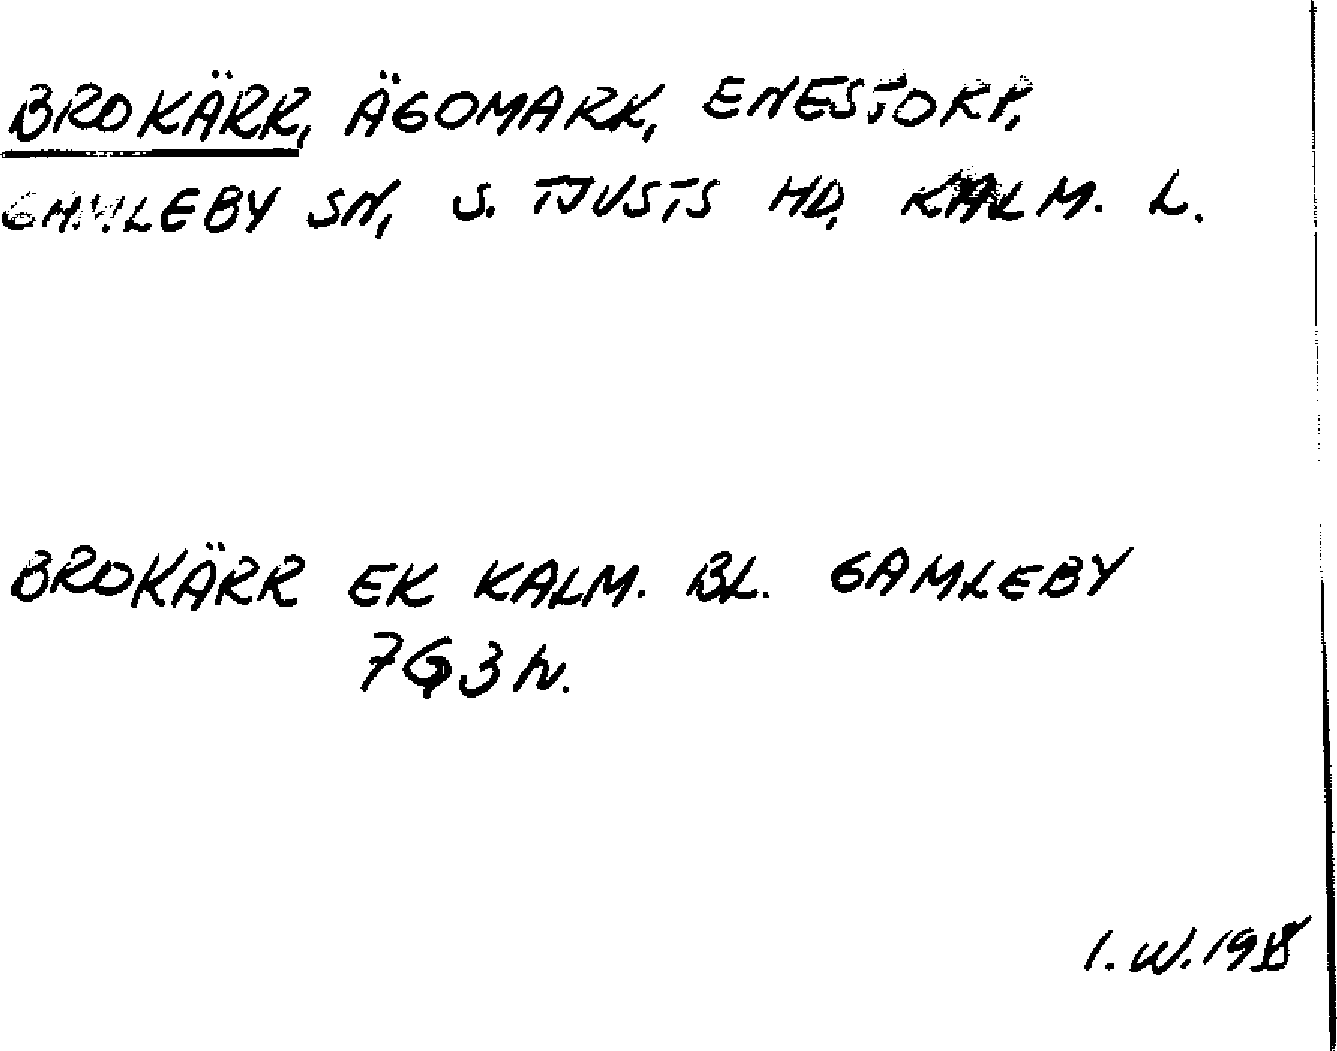 BROKÄRR, ÄGOMARK, ENESTORP,
GAMLEBY SN, S. TJUSTS HD, KALM. L.
BROKÄRR EK KALM. BL. GAMLEBY
7G3h.
I. W.